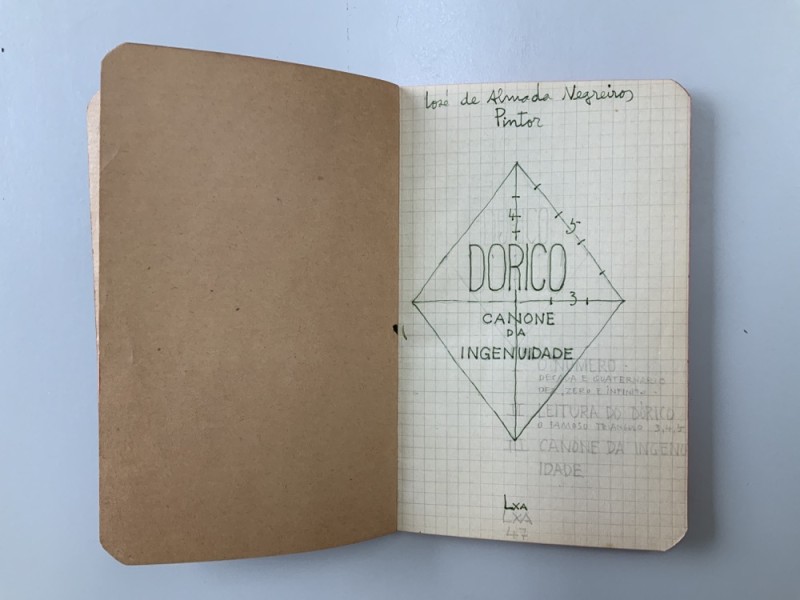 José de Almada Negreiros
Pintor
4
5
DORICO
3
CANONE
DA
INGENUIDADE
O NUMERO.
DECADA E QUATERNARIO
DEZ, ZERO E INFINITO.
II LEITURA DO DORICO
O FAMOSO TRIANGULO 3,4,5
III CANONE DA INGENU
IDADE
Lxa
LXA
47